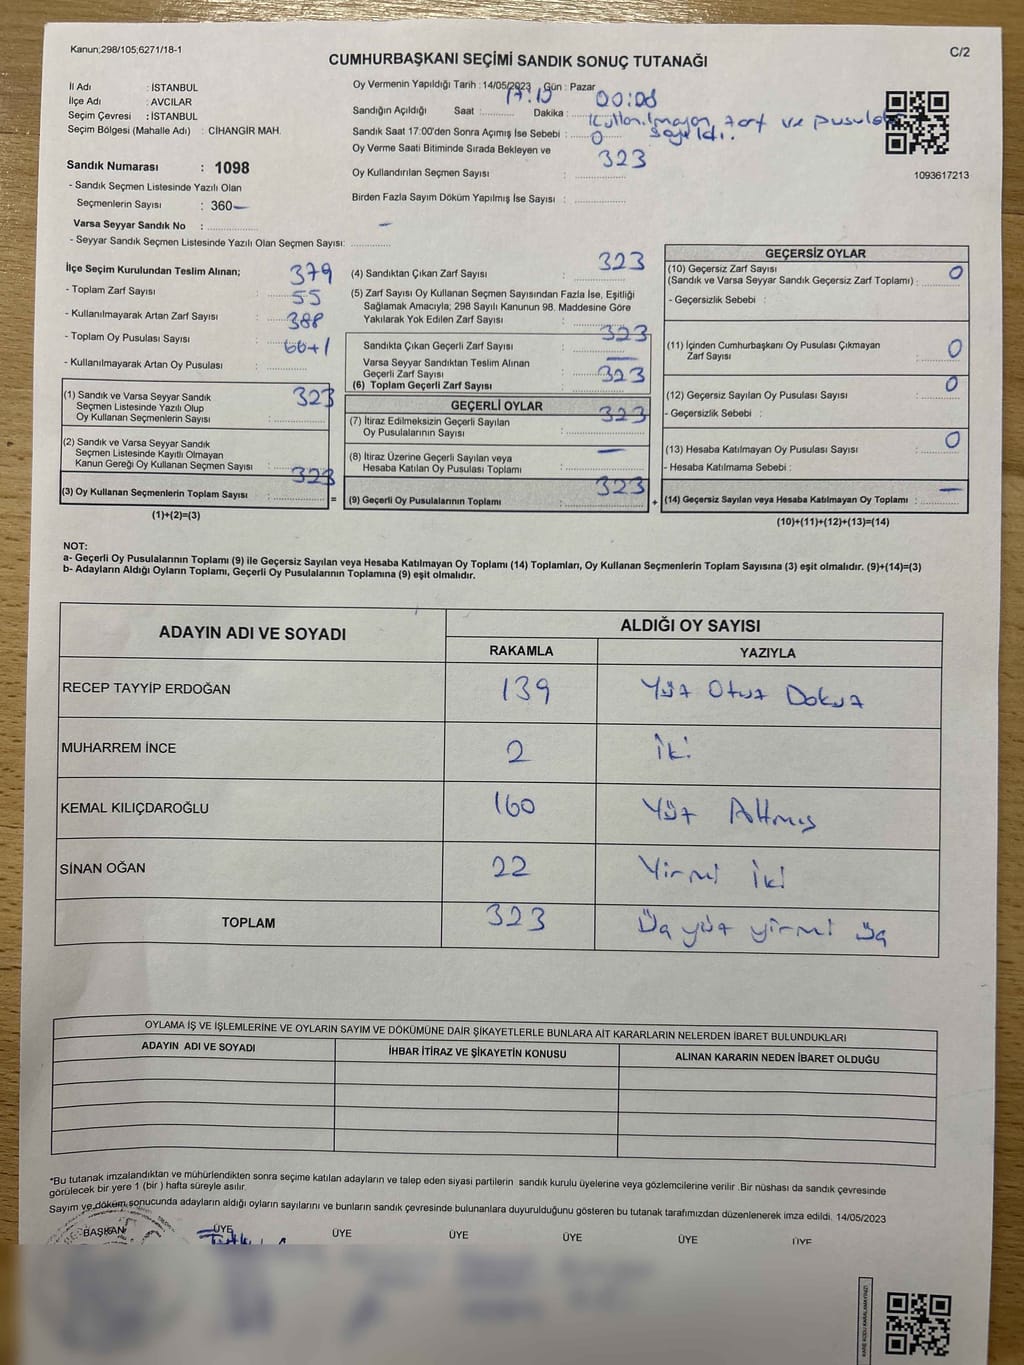 Kanun;298/105;6271/18-1
C/2
CUMHURBAŞKANI SEÇİMİ SANDIK SONUÇ TUTANAĞI
İl Adı : İSTANBUL
İlçe Adı : AVCILAR
Seçim Çevresi : İSTANBUL
Seçim Bölgesi (Mahalle Adı) : CİHANGİR MAH.
Sandık Numarası : 1098
- Sandık Seçmen Listesinde Yazılı Olan
Seçmenlerin Sayısı : 360
Varsa Seyyar Sandık No :
- Seyyar Sandık Seçmen Listesinde Yazılı Olan Seçmen Sayısı: -
Oy Vermenin Yapıldığı Tarih : 14/05/2023 Gün : Pazar
Sandığın Açıldığı Saat : 17:15 Dakika : 00:08
Sandık Saat 17:00'den Sonra Açımış İse Sebebi : Kullanılmayan zarf ve pusulalar sayıldı.
Oy Verme Saati Bitiminde Sırada Bekleyen ve
Oy Kullandırılan Seçmen Sayısı : 0
Birden Fazla Sayım Döküm Yapılmış İse Sayısı : 323
1093617213
İlçe Seçim Kurulundan Teslim Alınan;
- Toplam Zarf Sayısı : 379
- Kullanılmayarak Artan Zarf Sayısı : 55
- Toplam Oy Pusulası Sayısı : 388
- Kullanılmayarak Artan Oy Pusulası : 66+1
(1) Sandık ve Varsa Seyyar Sandık
Seçmen Listesinde Yazılı Olup
Oy Kullanan Seçmenlerin Sayısı : 323
(2) Sandık ve Varsa Seyyar Sandık
Seçmen Listesinde Kayıtlı Olmayan
Kanun Gereği Oy Kullanan Seçmen Sayısı :
(3) Oy Kullanan Seçmenlerin Toplam Sayısı : 323 =
(1)+(2)=(3)
(4) Sandıktan Çıkan Zarf Sayısı : 323
(5) Zarf Sayısı Oy Kullanan Seçmen Sayısından Fazla İse, Eşitliği
Sağlamak Amacıyla; 298 Sayılı Kanunun 98. Maddesine Göre
Yakılarak Yok Edilen Zarf Sayısı :
Sandıkta Çıkan Geçerli Zarf Sayısı : 323
Varsa Seyyar Sandıktan Teslim Alınan
Geçerli Zarf Sayısı : -
(6) Toplam Geçerli Zarf Sayısı : 323
GEÇERLİ OYLAR
(7) İtiraz Edilmeksizin Geçerli Sayılan
Oy Pusulalarının Sayısı : 323
(8) İtiraz Üzerine Geçerli Sayılan veya
Hesaba Katılan Oy Pusulası Toplamı : -
(9) Geçerli Oy Pusulalarının Toplamı : 323 +
GEÇERSİZ OYLAR
(10) Geçersiz Zarf Sayısı
(Sandık ve Varsa Seyyar Sandık Geçersiz Zarf Toplamı) : 0
- Geçersizlik Sebebi :
(11) İçinden Cumhurbaşkanı Oy Pusulası Çıkmayan
Zarf Sayısı : 0
(12) Geçersiz Sayılan Oy Pusulası Sayısı : 0
- Geçersizlik Sebebi :
(13) Hesaba Katılmayan Oy Pusulası Sayısı : 0
- Hesaba Katılmama Sebebi :
(14) Geçersiz Sayılan veya Hesaba Katılmayan Oy Toplamı : -
(10)+(11)+(12)+(13)=(14)
NOT:
a- Geçerli Oy Pusulalarının Toplamı (9) ile Geçersiz Sayılan veya Hesaba Katılmayan Oy Toplamı (14) Toplamları, Oy Kullanan Seçmenlerin Toplam Sayısına (3) eşit olmalıdır. (9)+(14)=(3)
b- Adayların Aldığı Oyların Toplamı, Geçerli Oy Pusulalarının Toplamına (9) eşit olmalıdır.
ADAYIN ADI VE SOYADI
ALDIĞI OY SAYISI
RAKAMLA YAZIYLA
RECEP TAYYİP ERDOĞAN 139 Yüz Otuz Dokuz
MUHARREM İNCE 2 İki
KEMAL KILIÇDAROĞLU 160 Yüz Altmış
SİNAN OĞAN 22 Yirmi İki
TOPLAM 323 Üç yüz yirmi üç
OYLAMA İŞ VE İŞLEMLERİNE VE OYLARIN SAYIM VE DÖKÜMÜNE DAİR ŞİKAYETLERLE BUNLARA AİT KARARLARIN NELERDEN İBARET BULUNDUKLARI
ADAYIN ADI VE SOYADI İHBAR İTİRAZ VE ŞİKAYETİN KONUSU ALINAN KARARIN NEDEN İBARET OLDUĞU
*Bu tutanak imzalandıktan ve mühürlendikten sonra seçime katılan adayların ve talep eden siyasi partilerin sandık kurulu üyelerine veya gözlemcilerine verilir .Bir nüshası da sandık çevresinde
görülecek bir yere 1 (bir ) hafta süreyle asılır.
Sayım ve döküm sonucunda adayların aldığı oyların sayılarını ve bunların sandık çevresinde bulunanlara duyurulduğunu gösteren bu tutanak tarafımızdan düzenlenerek imza edildi. 14/05/2023
BAŞKAN ÜYE ÜYE ÜYE ÜYE ÜYE ÜYE